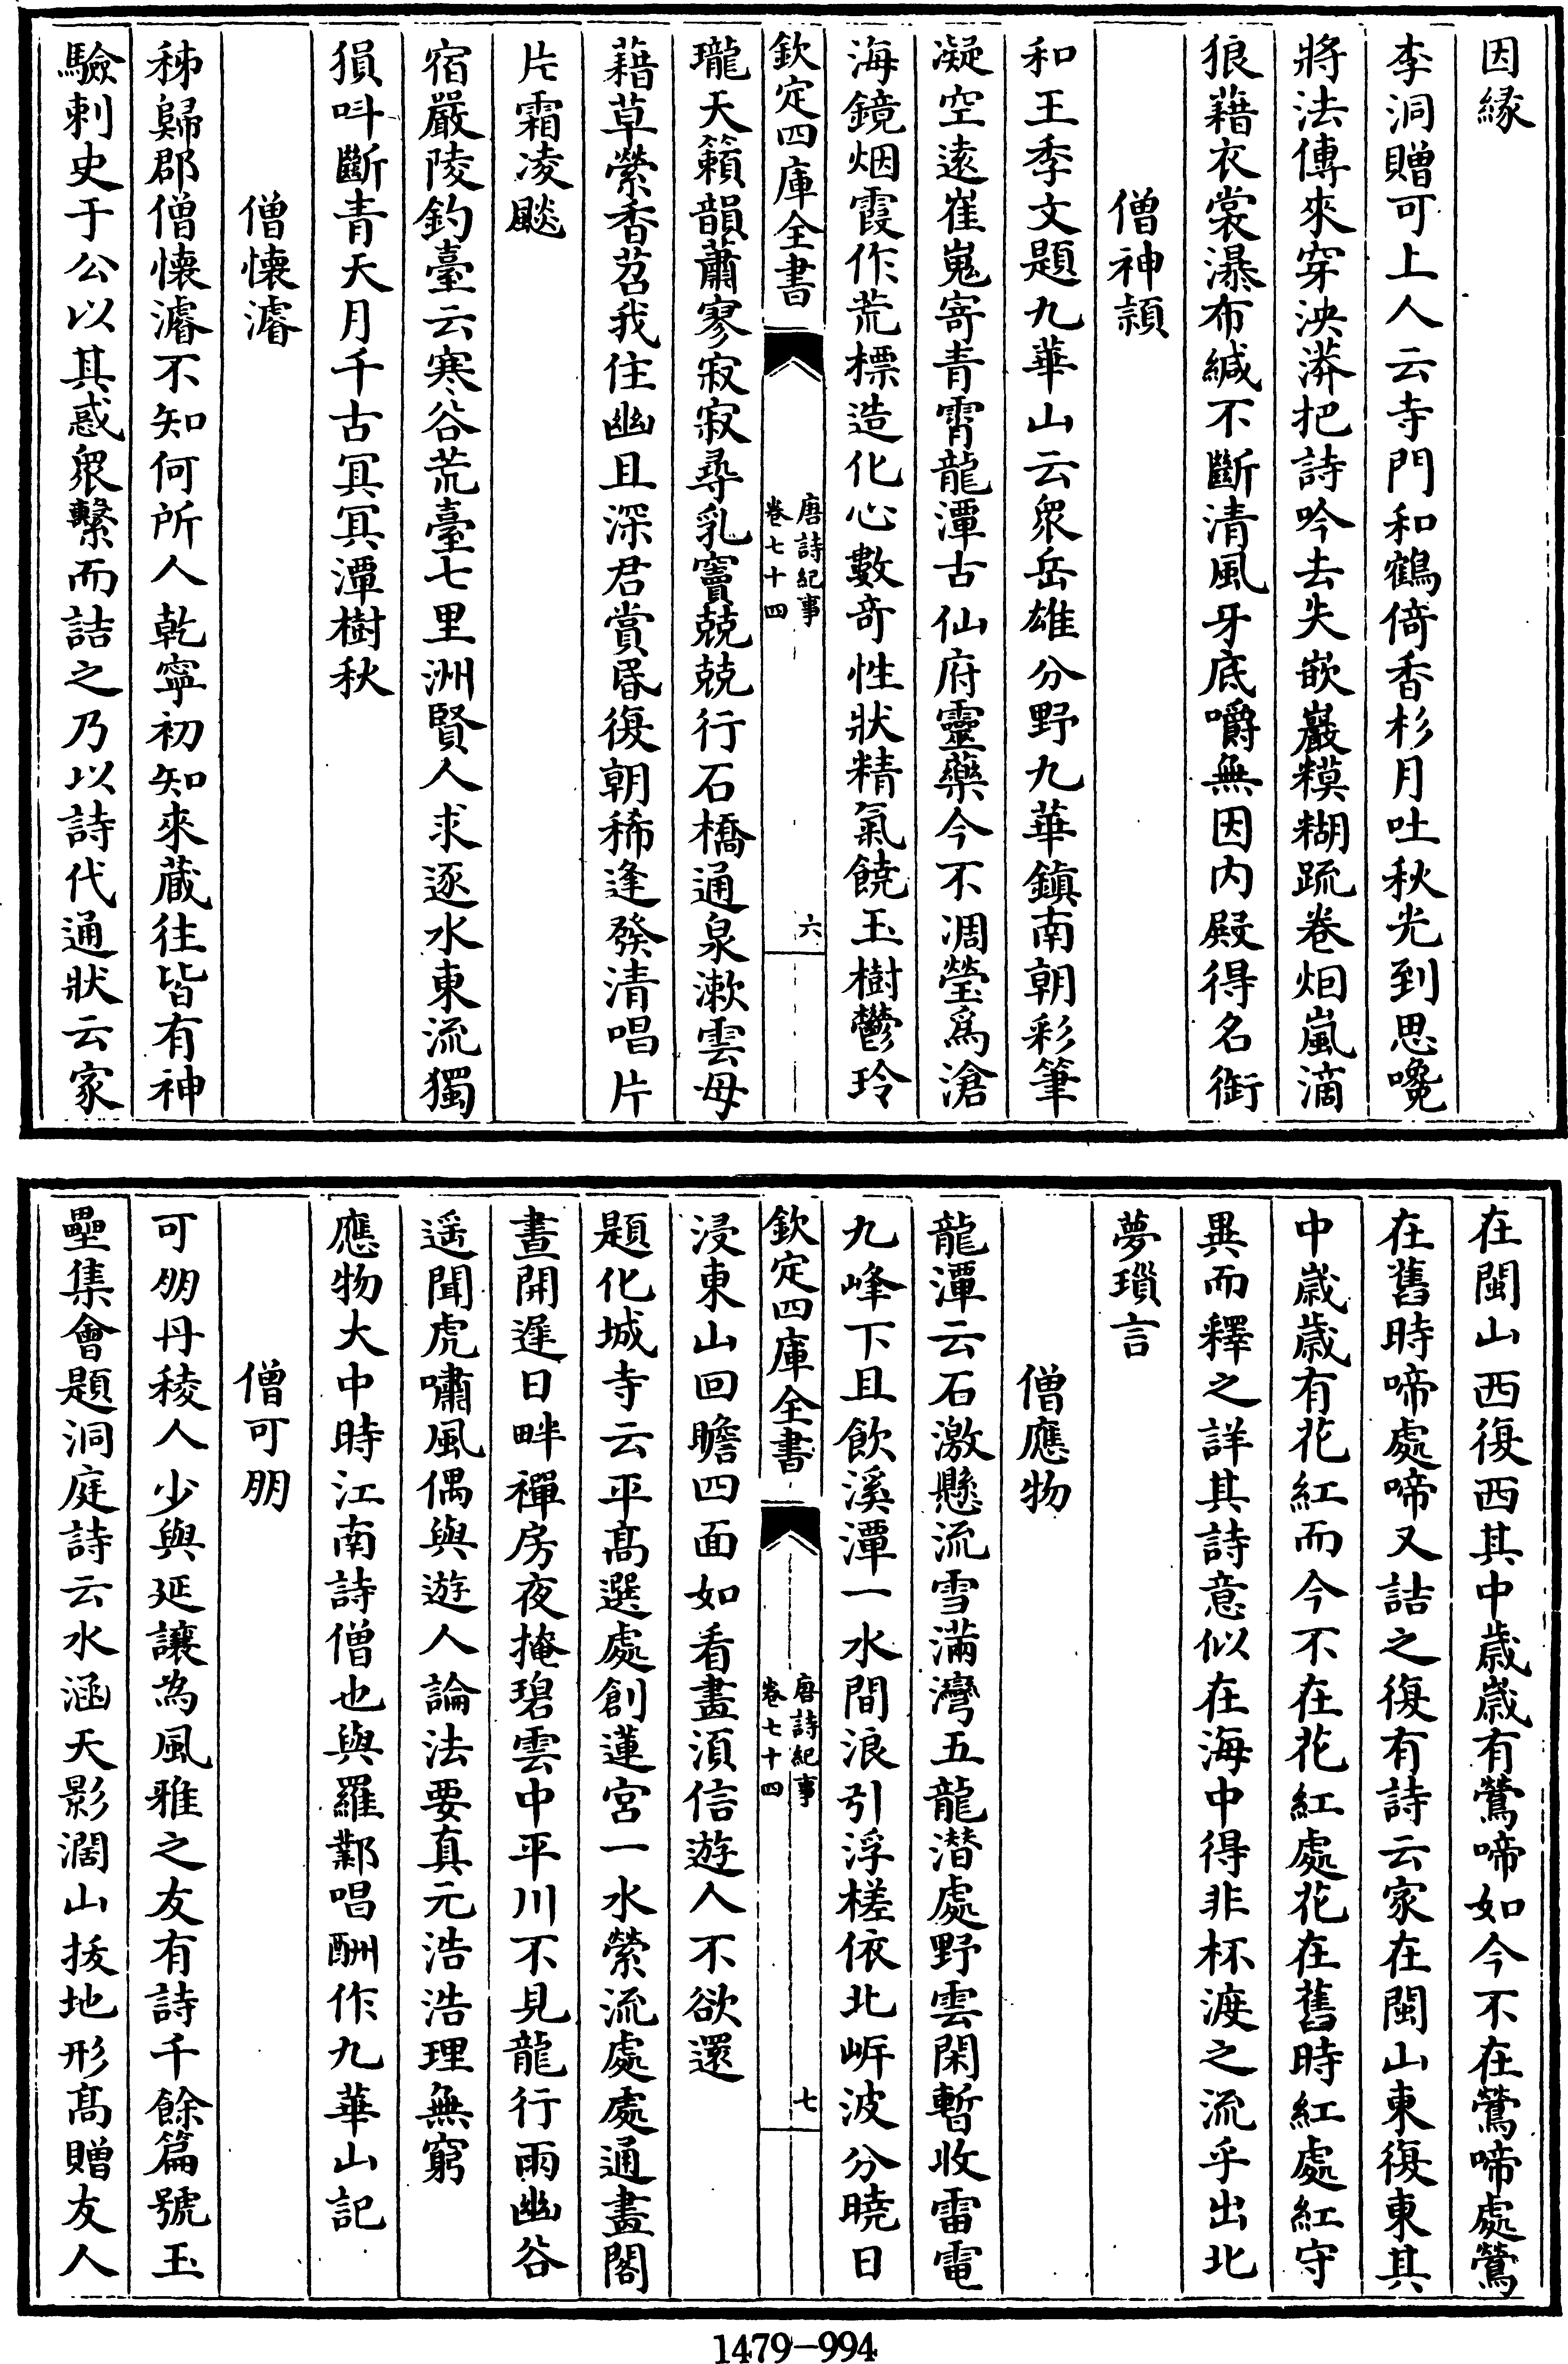 因縁
李洞贈可上人云寺門和鶴倚香杉月吐秋光到思嚵
將法傳來穿泱漭把詩吟去失嵌巖糢糊疏卷烟嵐滴
狼藉衣裳瀑布緘不斷清風牙底嚼無因内殿得名銜
僧神頴
和王季文題九華山云衆岳雄分野九華鎮南朝彩筆
凝空逺崔嵬寄青霄龍潭古仙府靈藥今不凋瑩爲滄
海鏡烟霞作荒標造化心數竒性狀精氣饒玉樹鬱玲
欽定四庫全書
唐詩紀事
卷七十四
六
瓏天籟韻蕭寥寂寂尋乳竇兢兢行石橋通泉漱雲母
藉草縈香苕我住幽且深君賞昏復朝稀逢發清唱片
片霜凌飈
宿嚴陵釣臺云寒谷荒臺七里洲賢人求逐水東流獨
損呌斷青天月千古冥冥潭樹秋
僧懐濬
秭歸郡僧懐濬不知何所人乾寧初知來蔵往皆有神
驗刺史于公以其惑衆繫而詰之乃以詩代通狀云家
在閩山西復西其中歳歳有鶯啼如今不在鶯啼處鶯
在舊時啼處啼又詰之復有詩云家在閩山東復東其
中歳歳有花紅而今不在花紅處花在舊時紅處紅守
異而釋之詳其詩意似在海中得非杯渡之流乎出北
夢瑣言
僧應物
龍潭云石激懸流雪滿灣五龍潛處野雲閑暫收雷電
九峰下且飲溪潭一水間浪引浮槎依北㟁波分曉日
浸東山回瞻四面如看畫湏信遊人不欲還
題化城寺云平髙選處創蓮宮一水縈流處處通畫閣
晝開遲日畔禪房夜掩碧雲中平川不見龍行雨幽谷
遥聞虎嘯風偶與遊人論法要真元浩浩理無窮
應物大中時江南詩僧也與羅鄴唱酬作九華山記
僧可朋
可朋丹稜人少與延讓為風雅之友有詩千餘篇號玉
壘集會題洞庭詩云水涵天影濶山拔地形髙贈友人
欽定四庫全書
唐詩紀事
卷七十四
七
1479-994